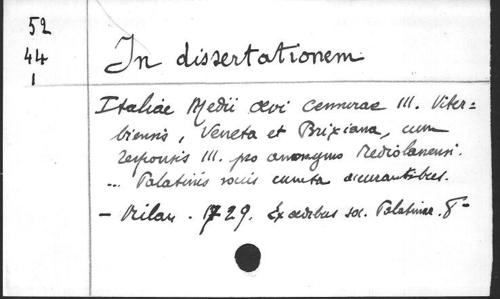 52
44
1
In dissertationem
Italiae Medii Aevi Censurae III. Viter=
biensis, Veneta et Brixiana, cum
responsis III. pro anonymo Mediolanensi.
... Palatinis sociis curantibus.
- Milan. 1729. Ex aedibus soc. Palatinae. 8°